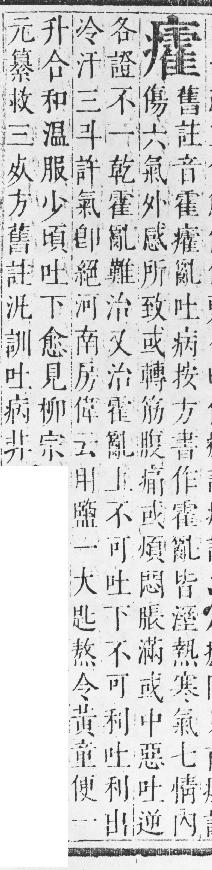 癨
舊註音霍癨亂吐病按方書作霍亂皆溼熱寒氣七情內
傷六氣外感所致或轉筋腹痛或煩悶脹滿或中惡吐逆
各證不一乾霍亂難治又治霍亂上不可吐下不可利吐利出
冷汗三斗許氣卽絕河南房偉云用鹽一大匙熬令黃童便一
升合和温服少頃吐下愈見柳宗
元纂救三死方舊註沇訓吐病非